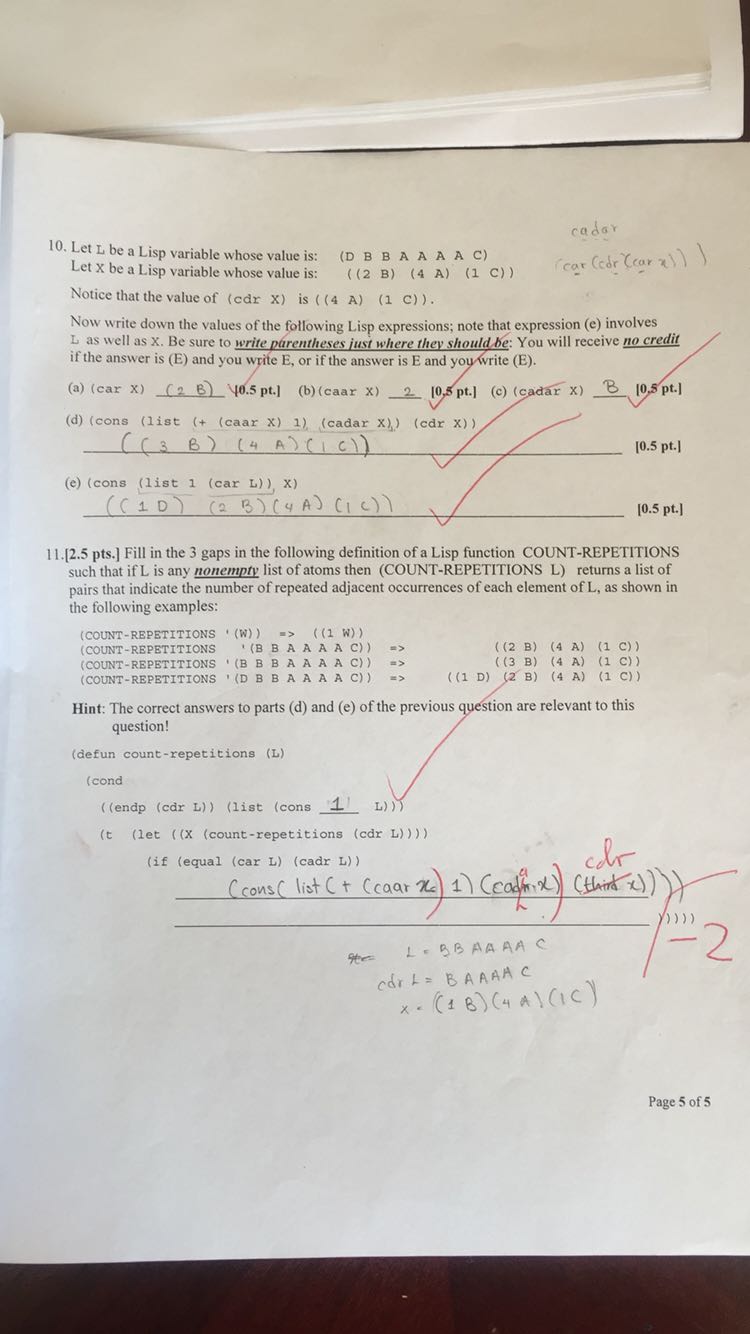 cadar
(car (cdr (car x)))
10. Let L be a Lisp variable whose value is: (D B B A A A A C)
Let X be a Lisp variable whose value is: ((2 B) (4 A) (1 C))
Notice that the value of (cdr X) is ((4 A) (1 C)).
Now write down the values of the following Lisp expressions; note that expression (e) involves
L as well as X. Be sure to write parentheses just where they should be: You will receive no credit
if the answer is (E) and you write E, or if the answer is E and you write (E).
(a) (car X) (2 B) [0.5 pt.] (b) (caar X) 2 [0.5 pt.] (c) (cadar X) B [0.5 pt.]
(d) (cons (list (+ (caar X) 1) (cadar X)) (cdr X))
((3 B) (4 A) (1 C)) [0.5 pt.]
(e) (cons (list 1 (car L)) X)
((1 D) (2 B) (4 A) (1 C)) [0.5 pt.]
11.[2.5 pts.] Fill in the 3 gaps in the following definition of a Lisp function COUNT-REPETITIONS
such that if L is any nonempty list of atoms then (COUNT-REPETITIONS L) returns a list of
pairs that indicate the number of repeated adjacent occurrences of each element of L, as shown in
the following examples:
(COUNT-REPETITIONS '(W)) => ((1 W))
(COUNT-REPETITIONS '(B B A A A A C)) => ((2 B) (4 A) (1 C))
(COUNT-REPETITIONS '(B B B A A A A C)) => ((3 B) (4 A) (1 C))
(COUNT-REPETITIONS '(D B B A A A A C)) => ((1 D) (2 B) (4 A) (1 C))
Hint: The correct answers to parts (d) and (e) of the previous question are relevant to this
question!
(defun count-repetitions (L)
(cond
((endp (cdr L)) (list (cons 1 L)))
(t (let ((X (count-repetitions (cdr L))))
(if (equal (car L) (cadr L))
cdr
(cons( list (+ (caar x) 1) (cadar x) (third x))))
)))))
-2
L = B B A A A A C
cdr L = B A A A A C
x = (1 B) (4 A) (1 C)
Page 5 of 5